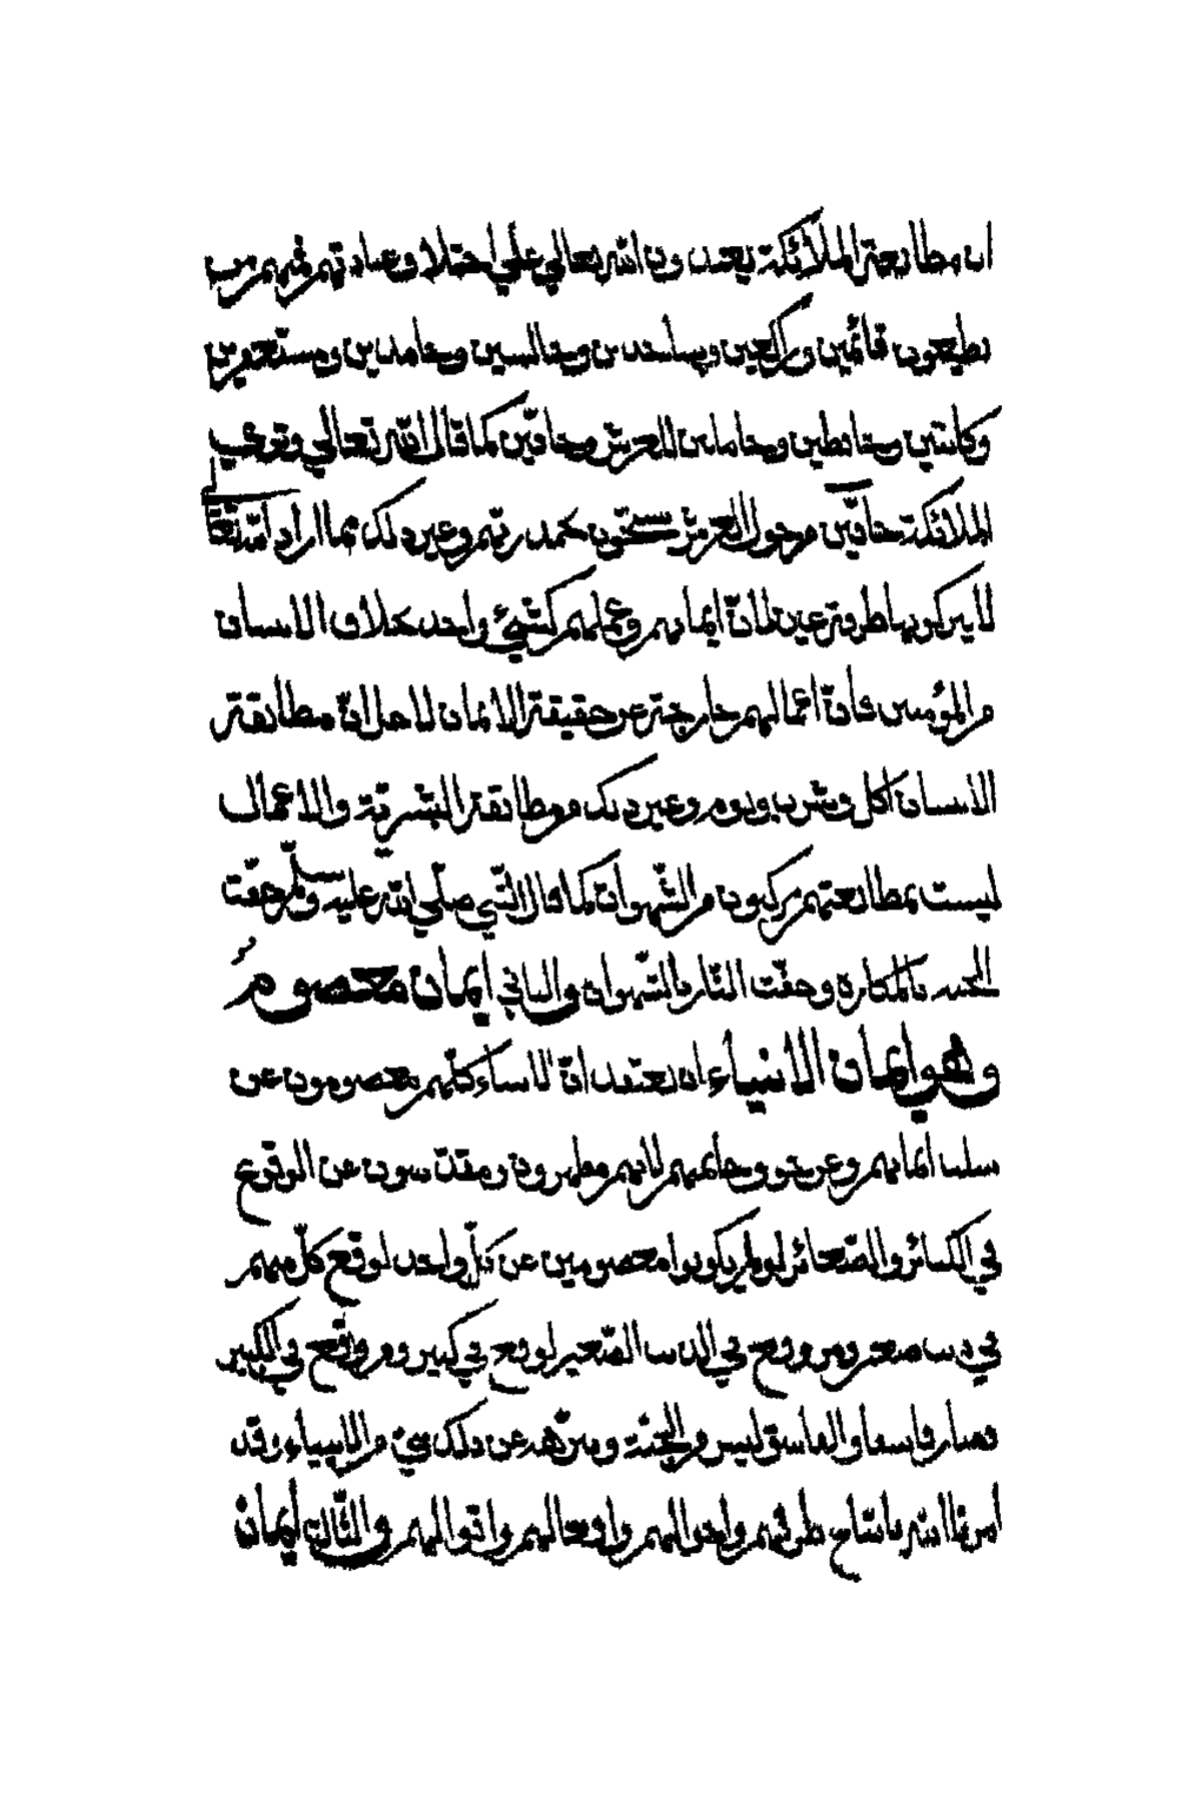 ان مطابعة الملائكة يعبدون الله تعالى على اختلاف عبادتهم فمنهم من
يطيعون قائمين وراكعين وساجدين وجالسين وحامدين ومستغفرين
وكاتبين وحافظين وحاملين للعرش وحافين كما قال الله تعالى وترى
الملائكة حافين من حول العرش يسبحون بحمد ربهم وغير ذلك مما اراد الله تعالى
لا يتركونها طرفة عين لان ايمانهم وعملهم كشيء واحد بخلاف الانسان
من المؤمنين فان اعمالهم خارجة عن حقيقة الايمان لاجل ان مطابقة
الانسان اكل وشرب ونوم وغير ذلك من مطابقة البشرية والاعمال
ليست بمطابعتهم مركبون من الشهوات كما قال النبي صلى الله عليه وسلم حفت
الجنة بالمكاره وحفت النار بالشهوات والثاني ايمان معصوم
وهو ايمان الانبياء ان يعتقد ان الانبياء كلهم معصومون عن
سلب ايمانهم وعن وخاتمتهم لانهم مطهرون ومقدسون عن الوقوع
في الكبائر والصغائر لو لم يكونوا معصومين عن كل واحد لوقع كل منهم
في ذنب صغير ومن وقع في الذنب الصغير لوقع في كبير ومن وقع في الكبير
فصار فاسقا والفاسق ليس من الجنة ومنزه عن ذلك شيء من الانبياء وقد
امرنا الله باتباع طرقهم واحوالهم وافعالهم واقوالهم والثالث ايمان